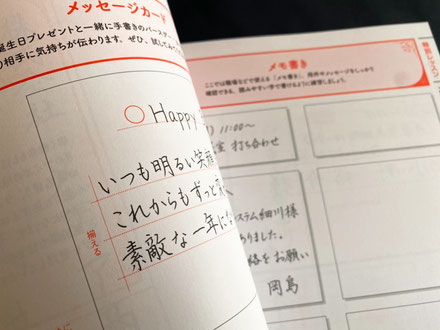 メッセージカード
誕生日プレゼントと一緒に手書きのバースデー
の相手に気持ちが伝わります。ぜひ、試してみて
○Happy
いつも明るい笑顔
これからもずっと
素敵な一年にな
揃える
メモ書き
ここでは職場などで使える「メモ書き」。用件やメッセージをしっかり
確認できる、読みやすい字で書けるように練習しましょう。
特別レッスン
11:00〜
室 打ち合わせ
ステム細川様
ありました。
絡をお願い
岡島